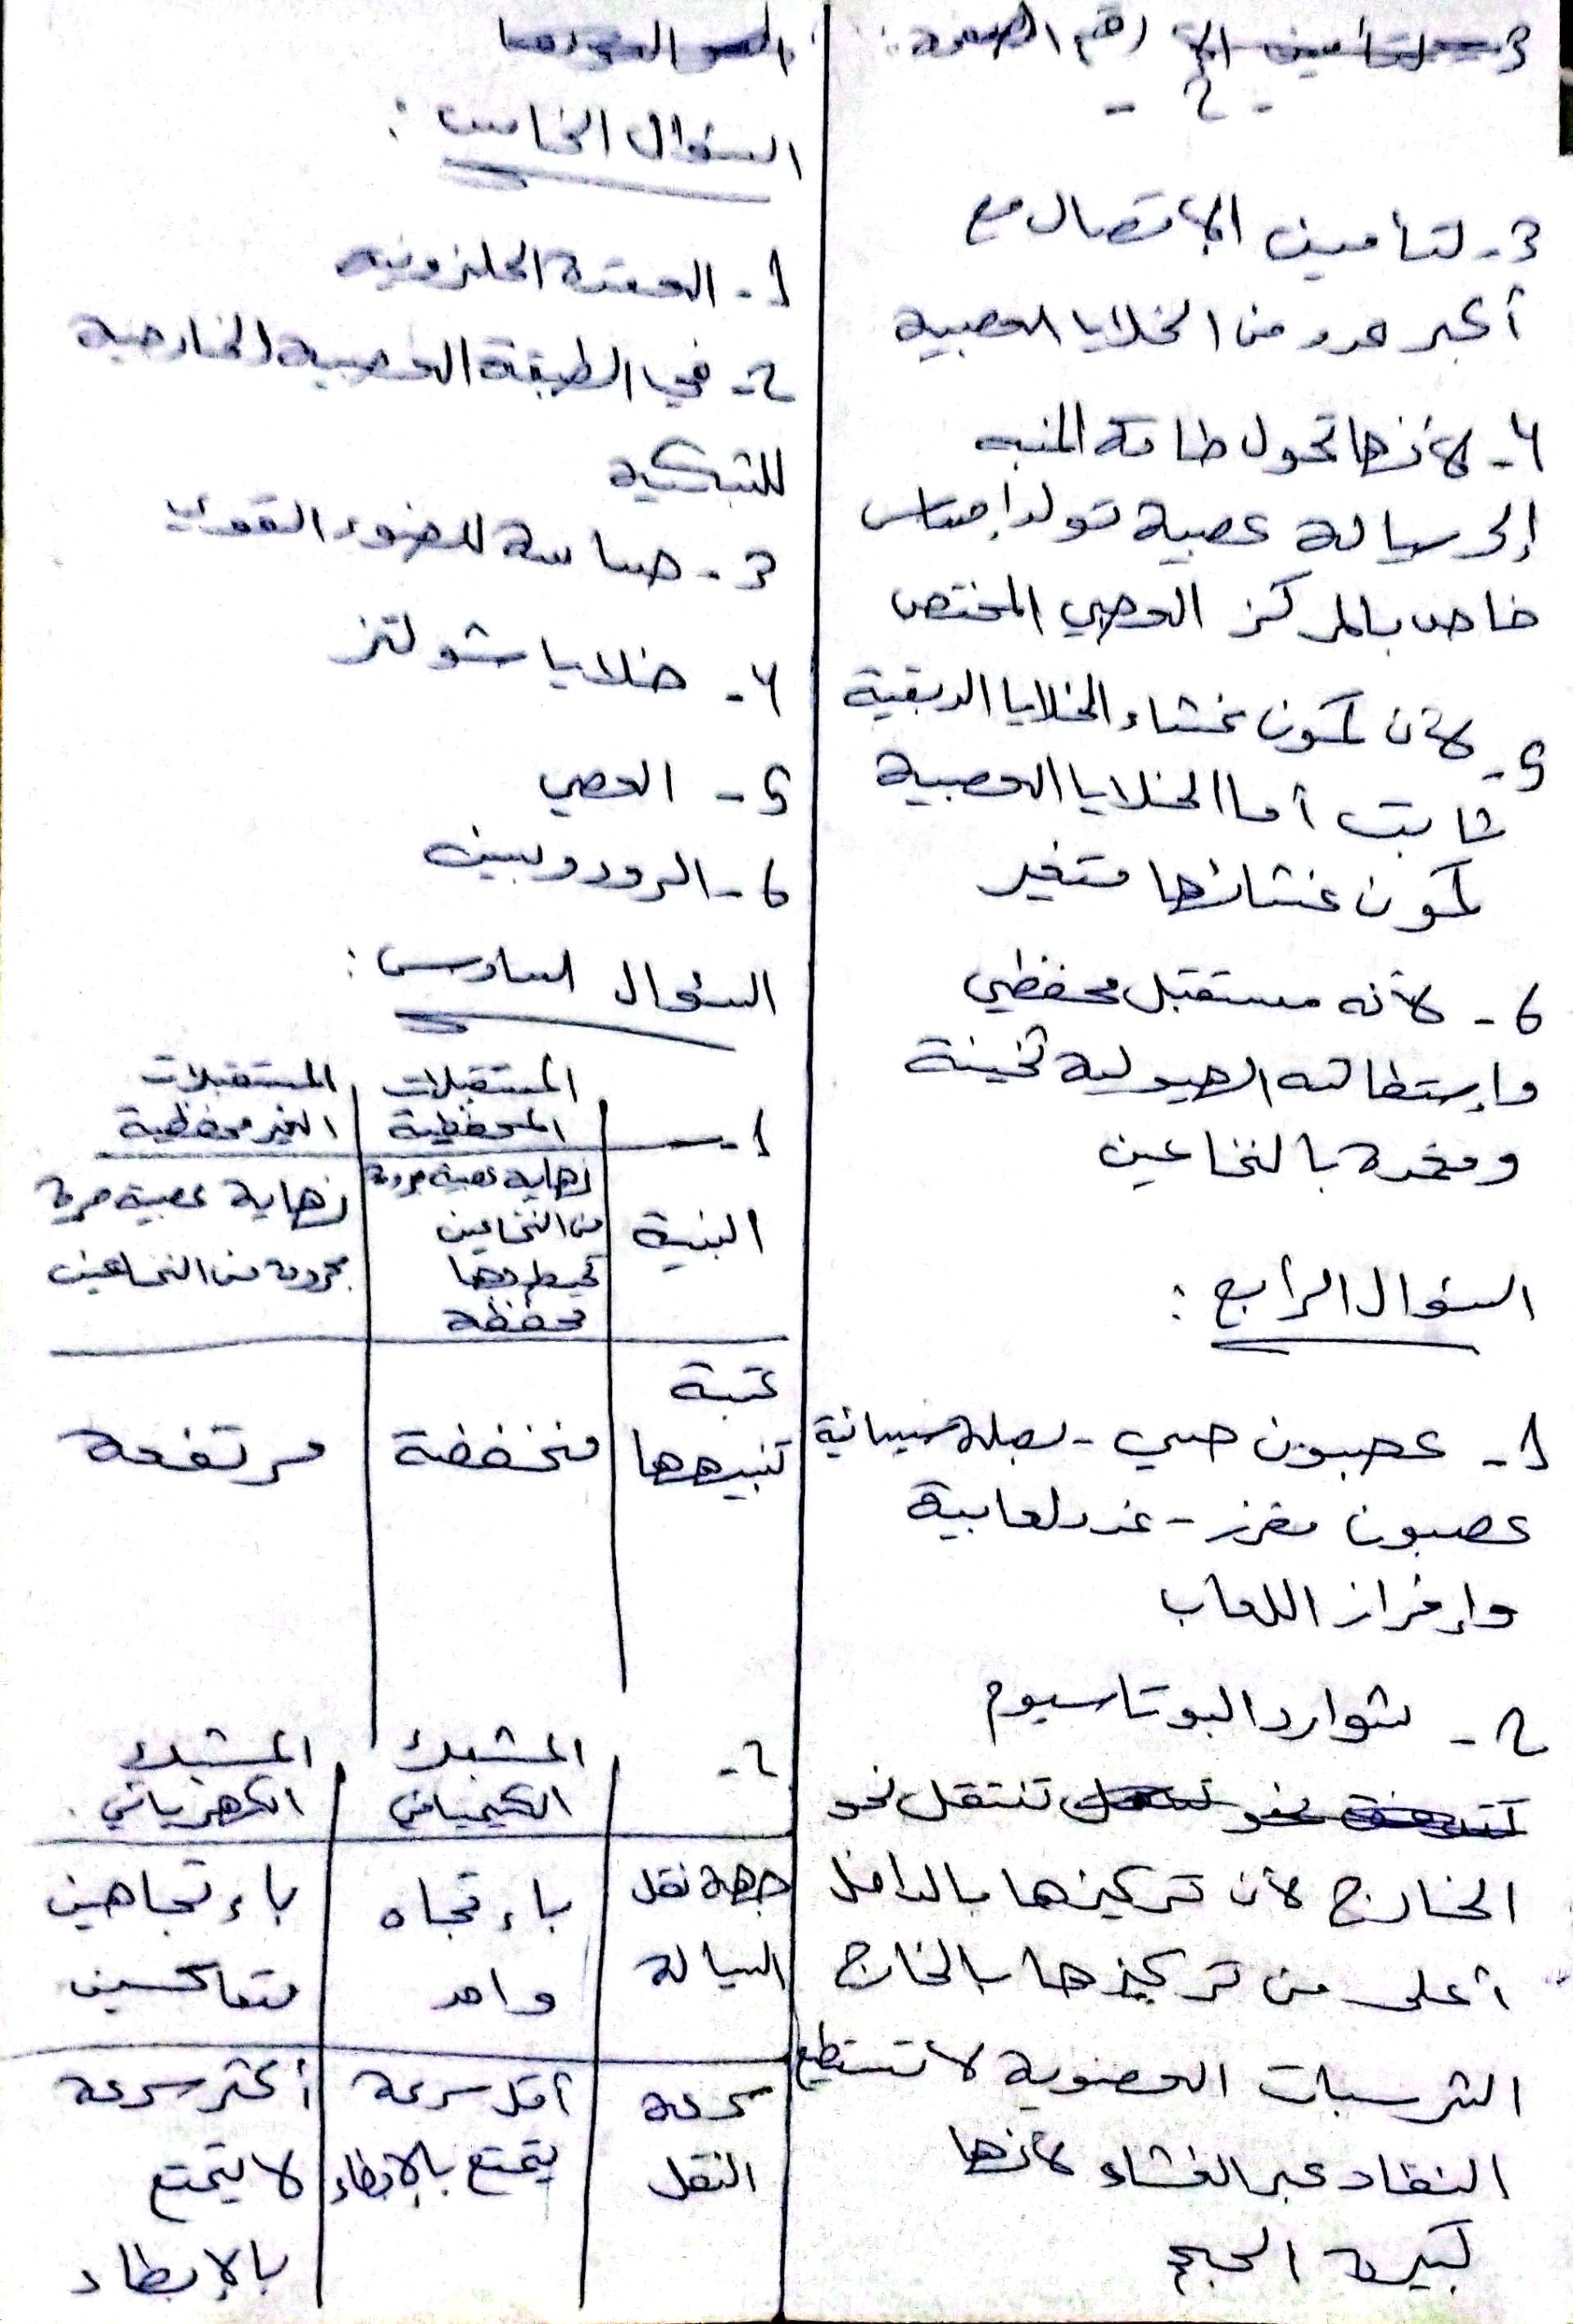 رقم الصفحة:
- 2 -
3- لتأمين الاتصال مع
أكبر عدد من الخلايا العصبية
4- لأنها تحول طاقة المنبه
إلى سيالة عصبية تولد إحساس
خاص بالمركز العصبي المختص
5- لأن كمون غشاء الخلايا الدبقية
ثابت أما الخلايا العصبية
كمون غشائها متغير
6- لأنه مستقبل محفظي
وإستطالته الهيولية ثخينة
ومغمدة بالنخاعين
السؤال الرابع:
1- عصبون حسي - بصلة سيسائية
عصبون مفرز - غدد لعابية
وإفراز اللعاب
2- شوارد البوتاسيوم
تنتقل نحو
الخارج لأن تركيزها بالداخل
أعلى من تركيزها بالخارج
الشرسبات العضوية لا تستطيع
النفاد عبر الغشاء لأنها
كبيرة الحجم
السؤال الخامس:
1- العقدة الحلزونية
2- في الطبقة العصبية الخارجية
للشبكية
3- حساسة للضوء القوي
4- خلايا شولتز
5- العصي
6- الرودوبسين
السؤال السادس:
1- المستقبلات المستقبلات
المحفظية الغير محفظية
البنية نهاية عصبية مجردة نهاية عصبية حرة
من النخاعين مجردة من النخاعين
تحيط بها
محفظة
عتبة
تنبيهها منخفضة مرتفعة
2- المشبك المشبك
الكيميائي الكهربائي
جهة نقل بإتجاه بإتجاهين
السيالة واحد متعاكسين
سرعة أقل سرعة أكثر سرعة
النقل يتمتع بالإبطاء لا يتمتع
بالإبطاء